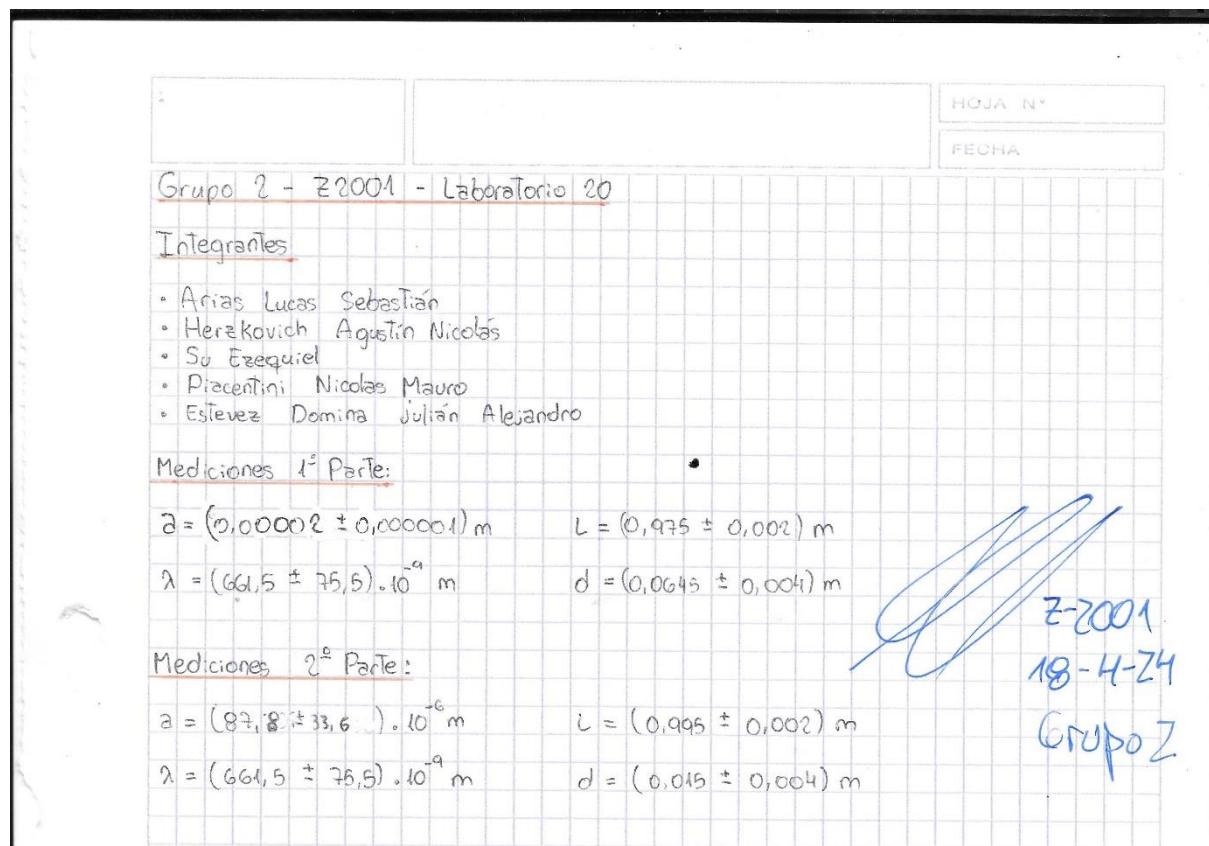 HOJA N°
FECHA
Grupo 2 - Z2001 - Laboratorio 20
Integrantes
• Arias Lucas Sebastián
• Herzkovich Agustín Nicolás
• Su Ezequiel
• Piacentini Nicolas Mauro
• Estevez Domina Julián Alejandro
Mediciones 1º Parte:
a = (0,00002 ± 0,000001) m L = (0,975 ± 0,002) m
λ = (661,5 ± 75,5) . 10⁻⁹ m d = (0,0645 ± 0,004) m
Mediciones 2º Parte:
a = (87,8 ± 33,6 ) . 10⁻⁶ m L = (0,995 ± 0,002) m
λ = (661,5 ± 75,5) . 10⁻⁹ m d = (0,015 ± 0,004) m
Z-2001
18-4-24
Grupo 2